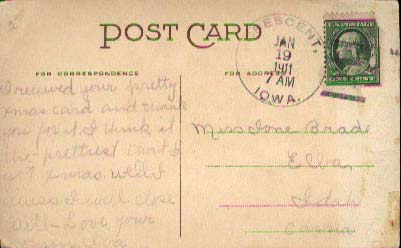 POST CARD
FOR CORRESPONDENCE
FOR ADDRESS
CRESCENT,
JAN
19
7 AM
IOWA.
I received your pretty
xmas card and thank
you for it. I think it
the prettiest card I
xmas. well I
guess I will close
with Love your
Miss Ione Brade
Elba,
Idaho
Cassia